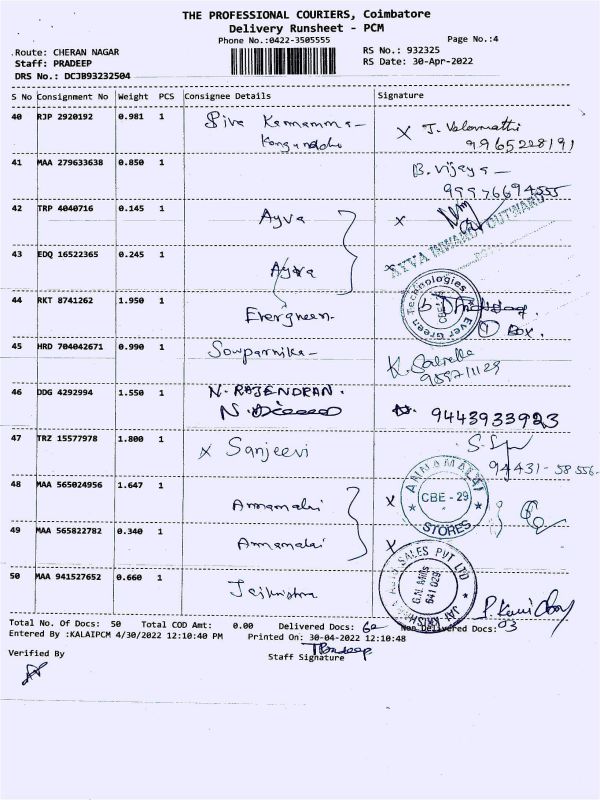 THE PROFESSIONAL COURIERS, Coimbatore
Delivery Runsheet - PCM
Phone No.:0422-3505555
Page No.:4
Route: CHERAN NAGAR
RS No.: 932325
Staff: PRADEEP
RS Date: 30-Apr-2022
DRS No.: DCJB93232504
S No Consignment No Weight PCS Consignee Details Signature
40 RJP 2920192 0.981 1 Siva
9965228191
41 MAA 279633638 0.850 1 B. Vijaya
42 TRP 4040716 0.145 1 Ayva X
AYVA INWARD/OUTWARD
43 EDQ 16522365 0.245 1 Ayva X
44 RKT 8741262 1.950 1 Evergreen
Ever Green Technologies CBE
1 BOX.
45 HRD 704042671 0.990 1 Sowparnika
46 DDG 4292994 1.550 1 N. RAJENDRAN. 9443933923
47 TRZ 15577978 1.800 1 X Sanjeevi
94431-58556
48 MAA 565024956 1.647 1 Annamalai X
ANNAMALAI STORES CBE - 29
49 MAA 565822782 0.340 1 Annamalai X
50 MAA 941527652 0.660 1 Jaikrishna
SALES PVT LTD JAI KRISHNA G.N. Mills 641 029
Total No. Of Docs: 50 Total COD Amt: 0.00 Delivered Docs: Non Delivered Docs: 03
Entered By :KALAIPCM 4/30/2022 12:10:40 PM Printed On: 30-04-2022 12:10:48
Verified By Staff Signature